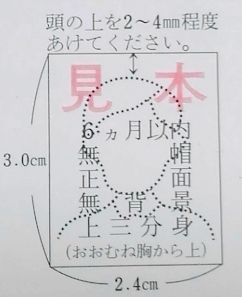 頭の上を2～4mm程度
あけてください。
見本
6ヵ月以内
無帽
正面
無背景
上三分身
(おおむね胸から上)
3.0cm
2.4cm